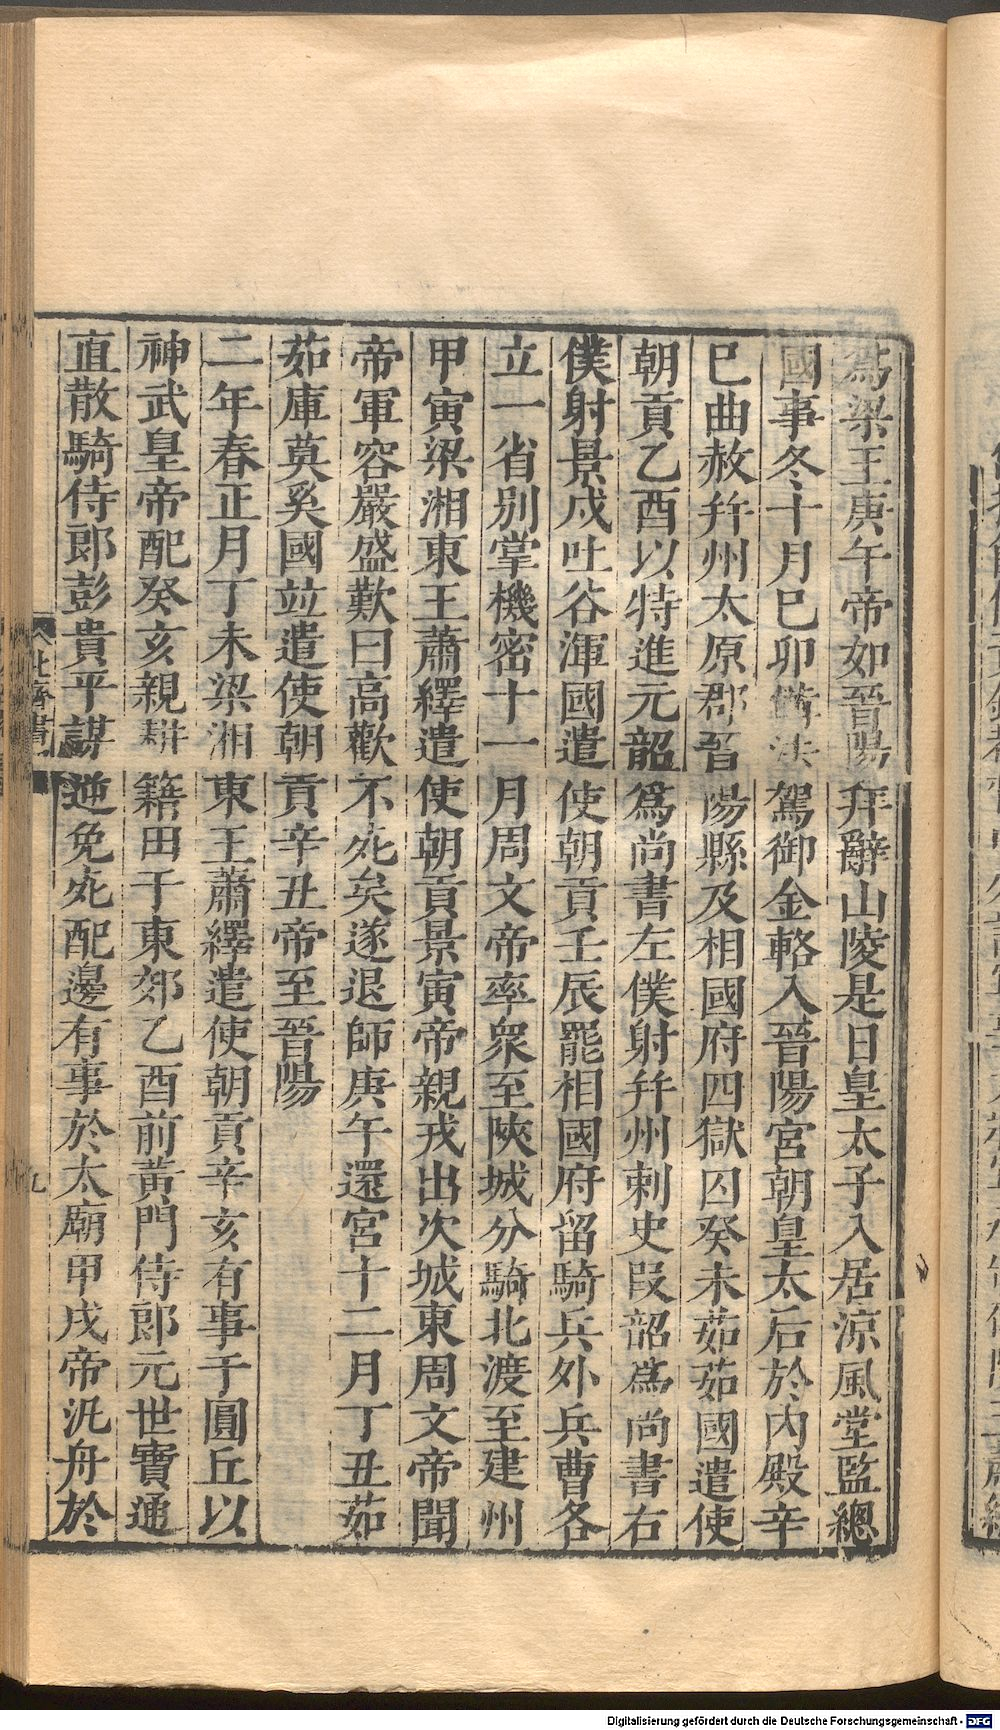 爲梁王庚午帝如晉陽拜辭山陵是日皇太子入居涼風堂監總
國事冬十月己卯備法駕御金輅入晉陽宮朝皇太后於內殿辛
巳曲赦幷州太原郡晉陽縣及相國府四獄囚癸未茹茹國遣使
朝貢乙酉以特進元韶爲尚書左僕射幷州刺史段韶爲尚書右
僕射景戍吐谷渾國遣使朝貢壬辰罷相國府留騎兵外兵曹各
立一省別掌機密十一月周文帝率衆至陝城分騎北渡至建州
甲寅梁湘東王蕭繹遣使朝貢景寅帝親戎出次城東周文帝聞
帝軍容嚴盛歎曰高歡不死矣遂退師庚午還宮十二月丁丑茹
茹庫莫奚國竝遣使朝貢辛丑帝至晉陽
二年春正月丁未梁湘東王蕭繹遣使朝貢辛亥有事于圓丘以
神武皇帝配癸亥親耕籍田于東郊乙酉前黃門侍郎元世寶通
直散騎侍郎彭貴平謀逆免死配邊有事於太廟甲戌帝汎舟於
北齊書
九
Digitalisierung gefördert durch die Deutsche Forschungsgemeinschaft - DFG